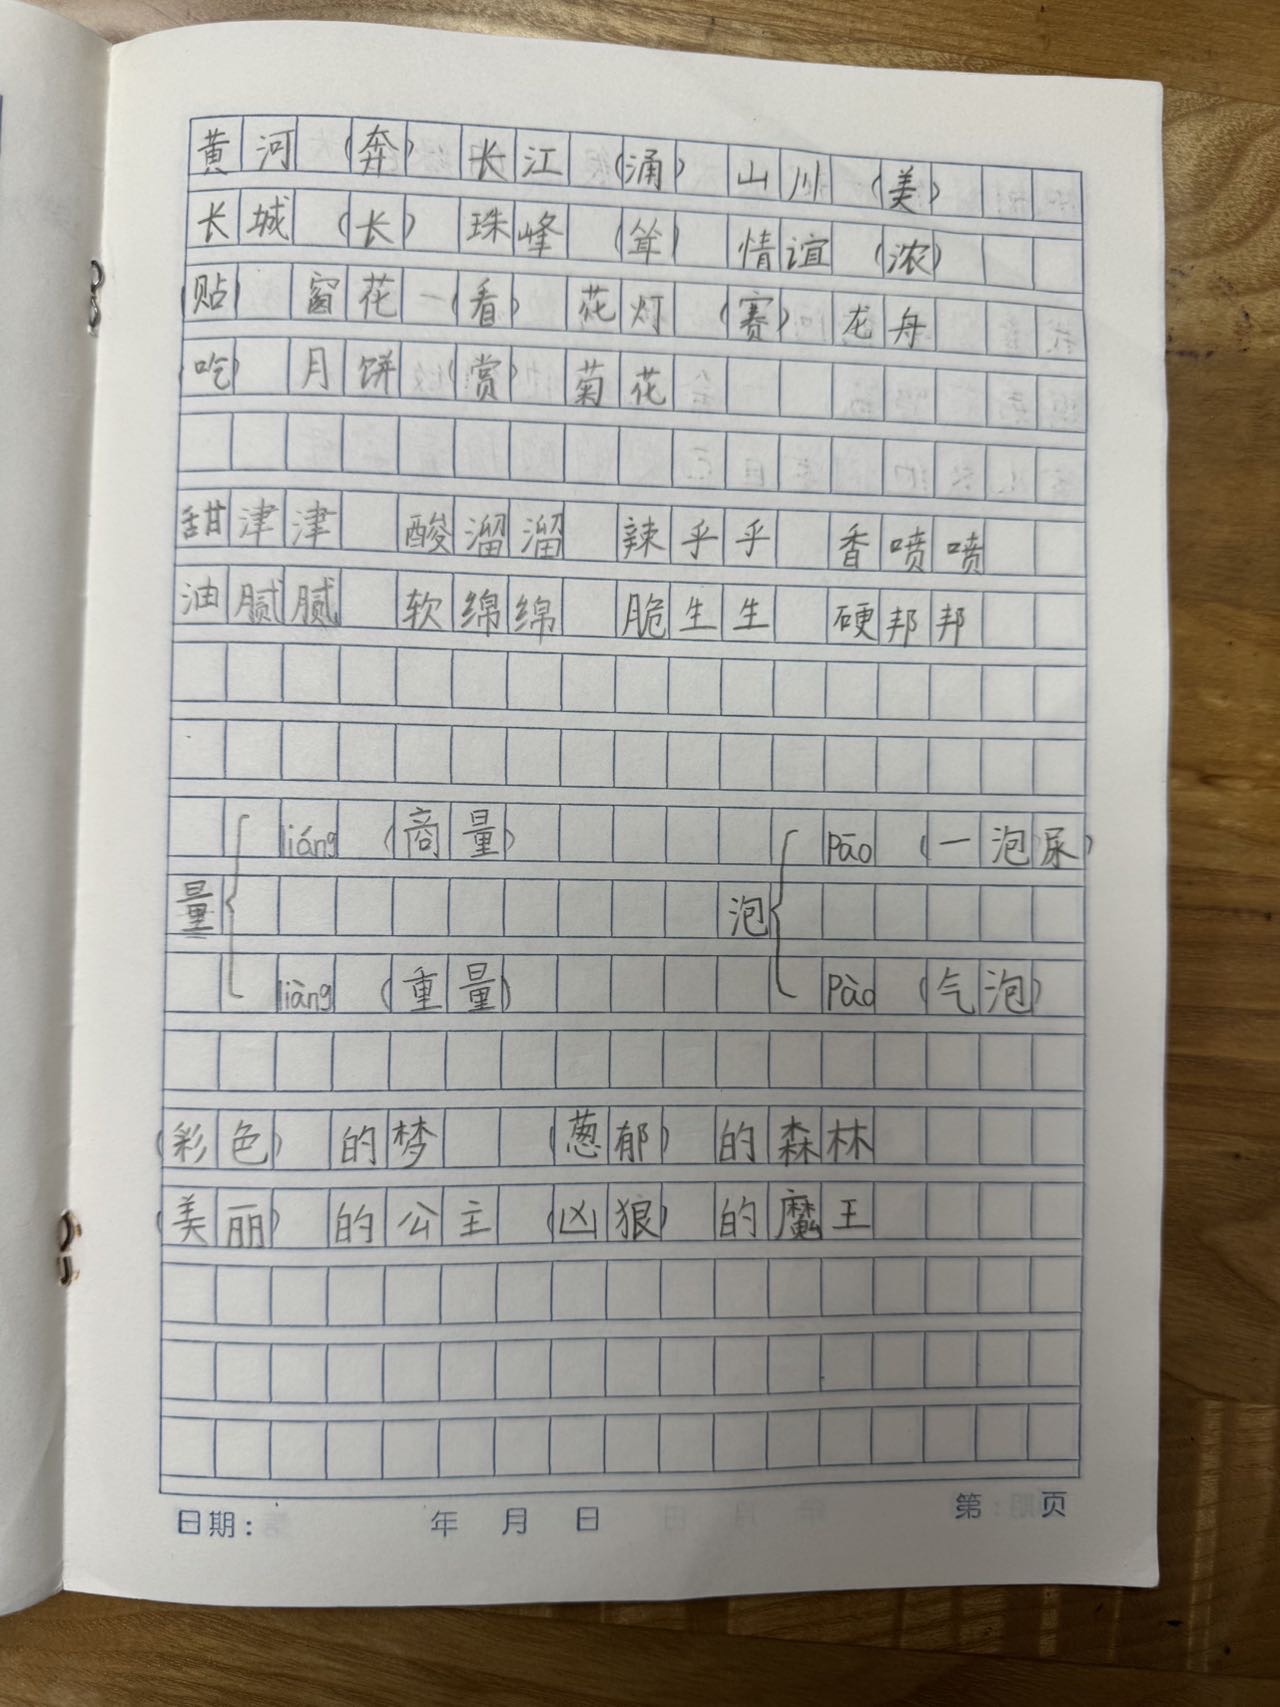 黄河（奔） 长江（涌） 山川（美）
长城（长） 珠峰（耸） 情谊（浓）
（贴）窗花 （看）花灯 （赛）龙舟
（吃）月饼 （赏）菊花
甜津津 酸溜溜 辣乎乎 香喷喷
油腻腻 软绵绵 脆生生 硬邦邦
liáng（商量） pāo（一泡尿）
量 泡
liàng（重量） pào（气泡）
（彩色）的梦 （葱郁）的森林
（美丽）的公主 （凶狠）的魔王
日期： 年 月 日 第 页